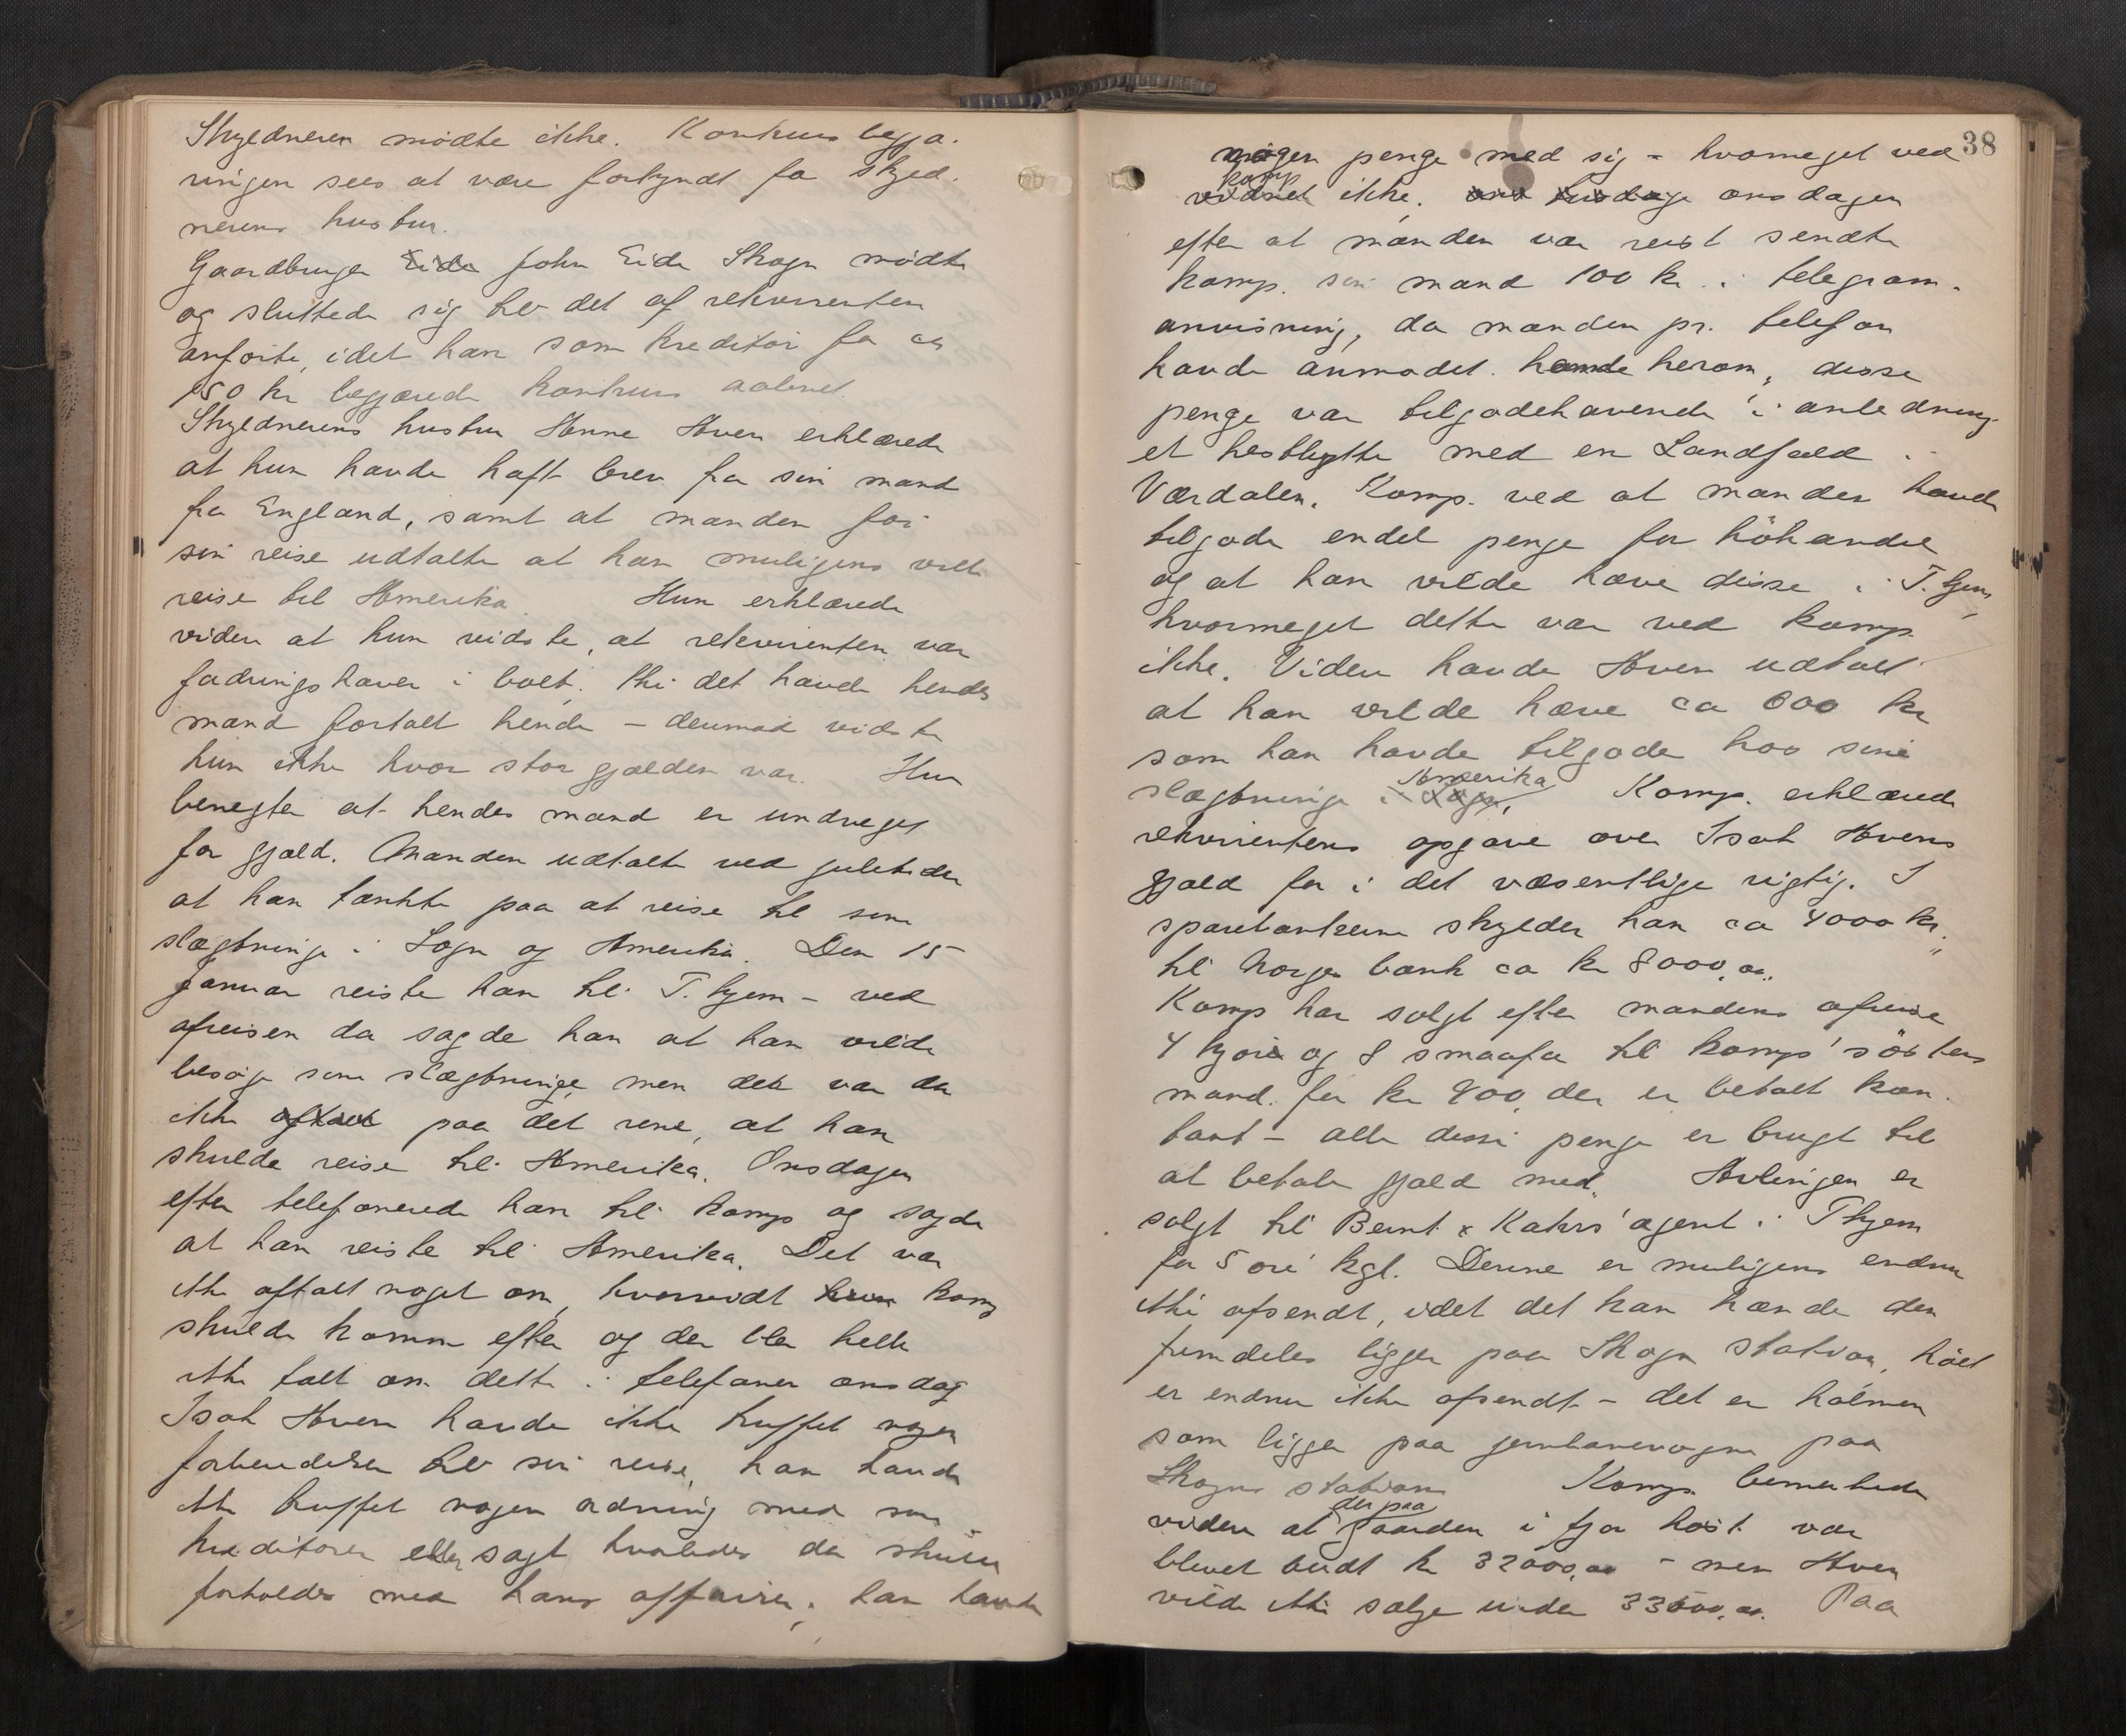 Skyldneren mødte ikke. Konkurs begjæ-
ringen sees at være forkyndt for skyld-
nerens hustru.
Gaardbruger Eide John Eide Skogn mødte
og sluttede sig til det af rekvirenten
anførte, idet han som kreditor for ca
150 kr begjærede konkurs aabnet.
Skyldnerens hustru Anne Hven erklærede
at hun havde haft brev fra sin mand
fra England, samt at manden før
sin reise udtalte at han muligens vilde
reise til Amerika. Hun erklærede
videre at hun vidste, at rekvirenten var
fordringshaver i boet, thi det havde hendes
mand fortalt hende – derimod vidste
hun ikke hvor stor gjælden var. Hun
benegter at hendes mand er undveget
for gjæld. Manden udtalte ved juletider
at han tænkte paa at reise til sine
slægtninge i Sogn og Amerika. Den 15
januar reiste han til T.hjem – ved
afreisen da sagde han at han vilde
besøge sine slægtninge, men det var da
ikke aftalt paa det rene, at han
skulde reise til Amerika. Onsdagen
efter telefonerede han til komp og sagde
at han reiste til Amerika. Det var
ikke aftalt noget om, hvorvidt hun komp
skulde komme efter og der blev heller
ikke talt om dette i telefonen onsdag
Isak Hven havde ikke truffet nogen
forberedelser til sin reise, han havde
ikke truffet nogen ordning med sine
kreditorer eller sagt hvorledes der skulde
forholdes med hans affairer; han havde
38
nogen penge med sig – hvormeget ved
komp
vidnet ikke. ons tirsdage onsdagen
efter at manden var reist sendte
komp. sin mand 100 kr. i telegram-
anvisning, da manden pr. telefon
havde anmodet hende herom, disse
penge var tilgodehavende i anledning
et hestbytte med en Landfald i
Værdalen. Komp. ved at manden havde
tilgode endel penge for höhandel
og at han vilde hæve disse i T.hjem,
hvormeget dette var ved komp.
ikke. Videre havde Hven udtalt
at han vilde hæve ca 600 kr
som han havde tilgode hos sine
Amerika
slægtninge i Sogn, Komp. erklærede
rekvirentens opgave over Isak Hvens
gjæld for i det væsentlige rigtig. I
sparebankerne skylder han ca 4000 kr.
til Norges bank ca kr 8000,00.
Komp har solgt efter mandens afreise
4 kjør og 8 smaafæ til komps' søsters
mand for kr 800, der er betalt kon-
tant – alle disse penge er brugt til
at betale gjæld med. Avlingen er
solgt til Bernt Kahrs' agent i T.hjem
for 5 øre kgl. Denne er muligens endnu
ikke afsendt, idet det kan hænde den
fremdeles ligger paa Skogn station, höet
er endnu ikke afsendt – det er halmen
som ligger paa jernbanevogne paa
Skogns station Komp. bemerkede
der paa
videre at gaarden i fjor høst var
blevet budt kr 32000,00 – men Hven
vilde ikke sælge under 33500,00. Paa